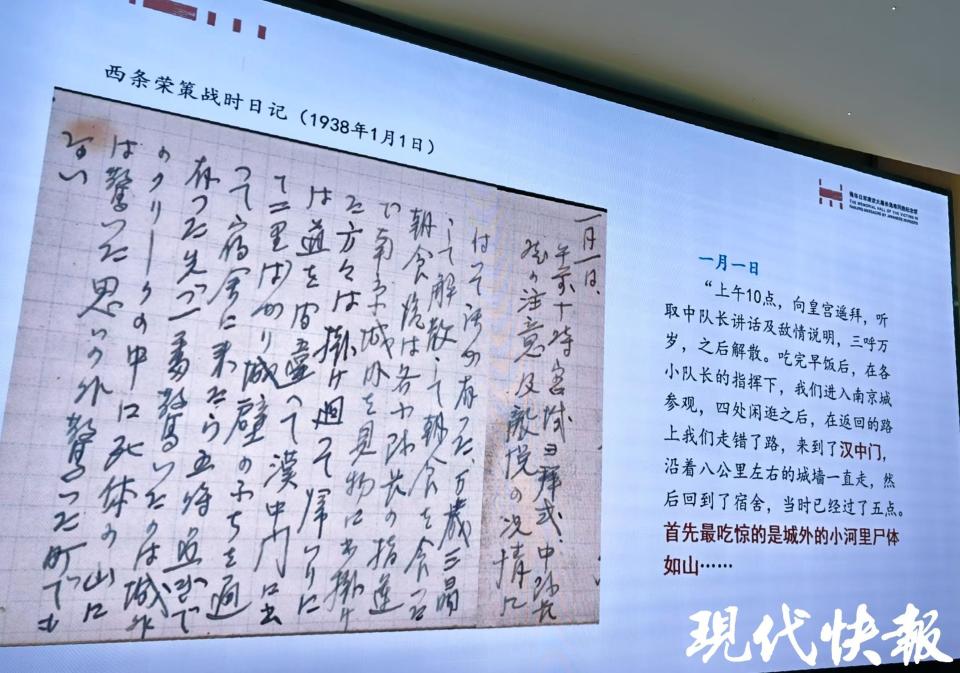 西条荣策战时日记（1938年1月1日）
侵华日军南京大屠杀遇难同胞纪念馆
THE MEMORIAL HALL OF THE VICTIMS IN
NANJING MASSACRE BY JAPANESE INVADERS
一月一日、
午前十時宮城 拝式、中隊長
の注意及敵 の況情に
付って話が有った、万歳三唱
して解散して朝食を食った
朝食後は各小隊長の指導
で南京城外を見物に出掛け
た方々は掛け廻って帰りに
は道を間違って漢中門に出
て二里ばかり城壁のふちを通
って宿舎に来たら五時過ぎで
有った先づ一番驚いたのは城外
のクリークの中に死体の山に
は驚いた思いの外 った町でも
ない
一月一日
“上午10点，向皇宫遥拜，听
取中队长讲话及敌情说明，三呼万
岁，之后解散。吃完早饭后，在各
小队长的指挥下，我们进入南京城
参观，四处闲逛之后，在返回的路
上我们走错了路，来到了汉中门，
沿着八公里左右的城墙一直走，然
后回到了宿舍，当时已经过了五点。
首先最吃惊的是城外的小河里尸体
如山……
现代快報